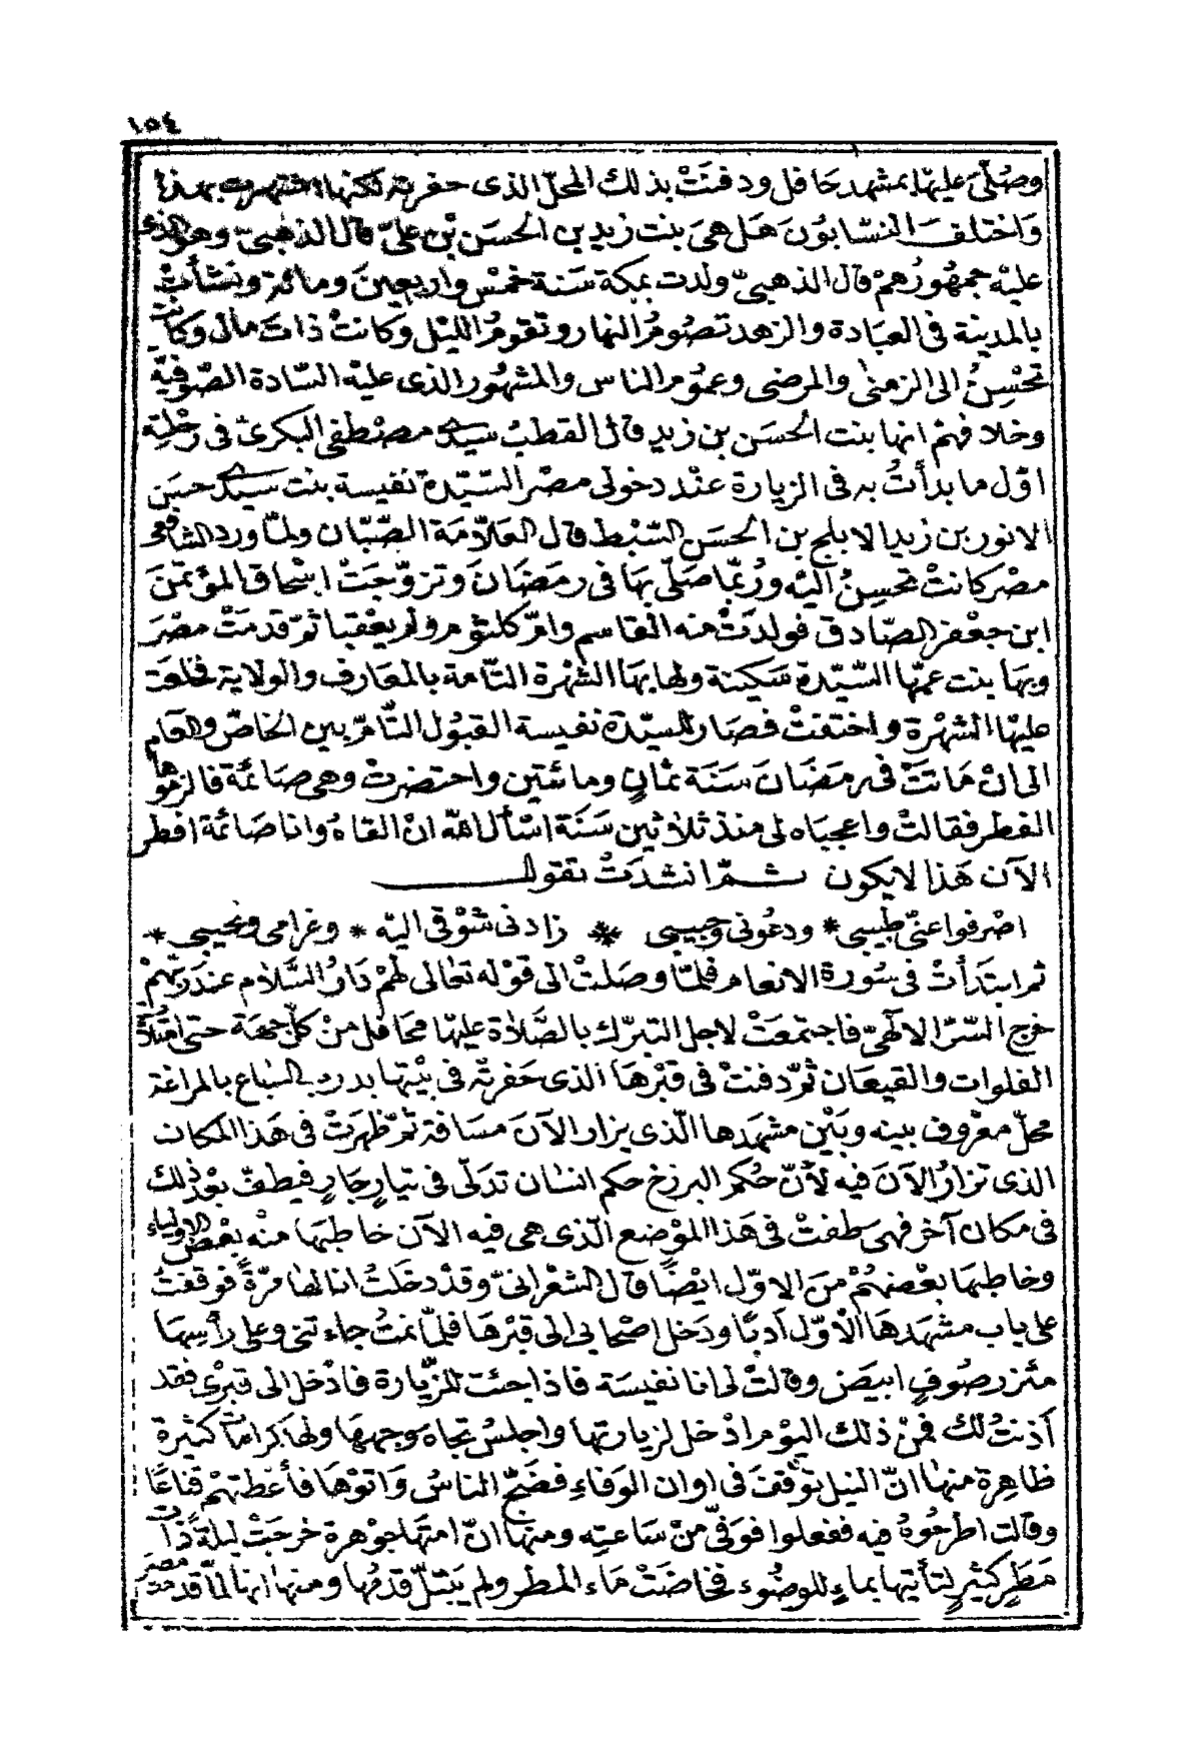 ١٥٤
وصُلّىَ عليها بمشهد حَافل ودفنَتْ بذلك المحلّ الذى حفرته لكنها اشتهرت بهذا
وَاختلفَ النسّابُونَ هَل هىَ بنت زيد بن الحسَن بْن علىّ قال الذهبىّ وهو الذى
عليْه جمهُورُهمْ قال الذهبىّ ولدت بمكة سَنة خمْس واربعينَ ومائة ونشأتْ
بالمدينة فى العبَادة والزهد تصُومُ النهار وتقومُ الليْل وكانتْ ذاتَ مال وكانت
تحْسِنُ الى الزمنى والمرضى وعمُوم الناس والمشهُور الذى عليْه السّادة الصّوفيّة
وخلافهمْ انها بنت الحسَن بن زيد قال القطبُ سيدى مصْطفى البَكرىّ فى رحْلته
اوّل ما بدأتُ به فى الزيارة عنْد دخولى مصْر السّيّدة نفيسة بنت سيدى حسَين
الانور بن زيد الابلج بن الحسَن السّبْط قال العَلاّمَة الصّبّان ولمّا ورد الشافعى
مصْر كانتْ تحسِنُ اليْه ورُبّما صَلّى بهَا فى رمَضَانَ وتزوّجَتْ اسْحاق المؤتمَنَ
ابن جعْفر الصّادق فولدَتْ منه القاسم وامّ كلثوم ولم يعْقبا ثمّ قدمَتْ مصْرَ
وبهَا بنت عمّها السّيّدة سَكينة ولها بهَا الشهْرة التّامة بالمعَارف والولاية فخلعَتْ
عليْها الشهْرة واختفتْ فصَار للسيّدة نفيسة القبُول التّامّ بين الخاصّ والعَام
الى انْ مَاتتْ فى رمَضَانَ سَنَة ثمانٍ ومائتين واحتضرتْ وهى صَائمَة فالزموها
الفطر فقالتْ واعجبَاه لى منذ ثلاثين سَنَة اسْأل الله انْ القاهُ وانا صَائمة افطر
الآن هَذا لا يكون ثمّ انشدَتْ تقول
اصْرفوا عنّى طبيبى * ودعُونى وحبيبى * زادنى شوْقى اليه * وغرامى ونحيبى *
ثم ابتَدَأتْ فى سُورة الانعام فلمّا وصَلتْ الى قوْله تعالى لهمْ دَارُ السَّلاَم عندَ ربّهمْ
خرج السّرّ الالهىّ فاجتمعَتْ لاجل التبرّك بالصَّلاة عليْها محَافل منْ كلّ جهَة حتى امْتلأ
الفلوات والقيعَان ثمّ دفنتْ فى قبْرهَا الذى حَفرتْه فى بيْتها بدرب السّباع بالمراغة
محلّ معْرُوف بينه وبَيْن مشهَدها الّذى يزار الآنَ مسَافة ثمّ ظهرَتْ فى هَذا المكان
الذى تزارُ الآنَ فيه لأنّ حُكم البرزخ حكم انسان تدَلّى فى تيارٍ جَارٍ فيطفّ بعْد ذلك
فى مكان آخر فهى طفتْ فى هَذا الموْضع الّذى هى فيه الآن خاطبَها منْه بعْض الاولياء
وخاطبها بعْضهُمْ منَ الاوّل ايْضًا قال الشعْرانىّ وقدْ دخَلتُ انا لها مرّةً فوقفتُ
على باب مشهَدهَا الْأوّل أدبًا ودَخل اصْحَابى الى قبْرهَا فلمّا نمتُ جاءتنى وعلى رأسِهَا
مئزر صُوفٍ ابيَض وقالتْ لى انا نفيسَة فاذا جئت للزّيارة فادْخل الى قبْرى فقد
أذنتُ لك فمنْ ذلك اليوْم ادْخل لزيارتها واجلسُ تجاهَ وجهها ولها كرامَات كثيرة
ظاهِرة منها انّ النيل توَقفَ فى اوان الوَفاءِ فضَجّ الناسُ وَاتوْهَا فأعْطتهمْ قناعًا
وقالت اطرحُوهُ فيه ففعلوا فوَفّى منْ سَاعتِه ومنها انّ امتها جوْهرة خرجَتْ ليلة ذات
مَطرٍ كثيرٍ لتأتيَها بماءٍ للوضُوء فخاضَتْ مَاء المطر ولم يَبْتلّ قدمُها ومنها انها لمّا قدمت مصْر